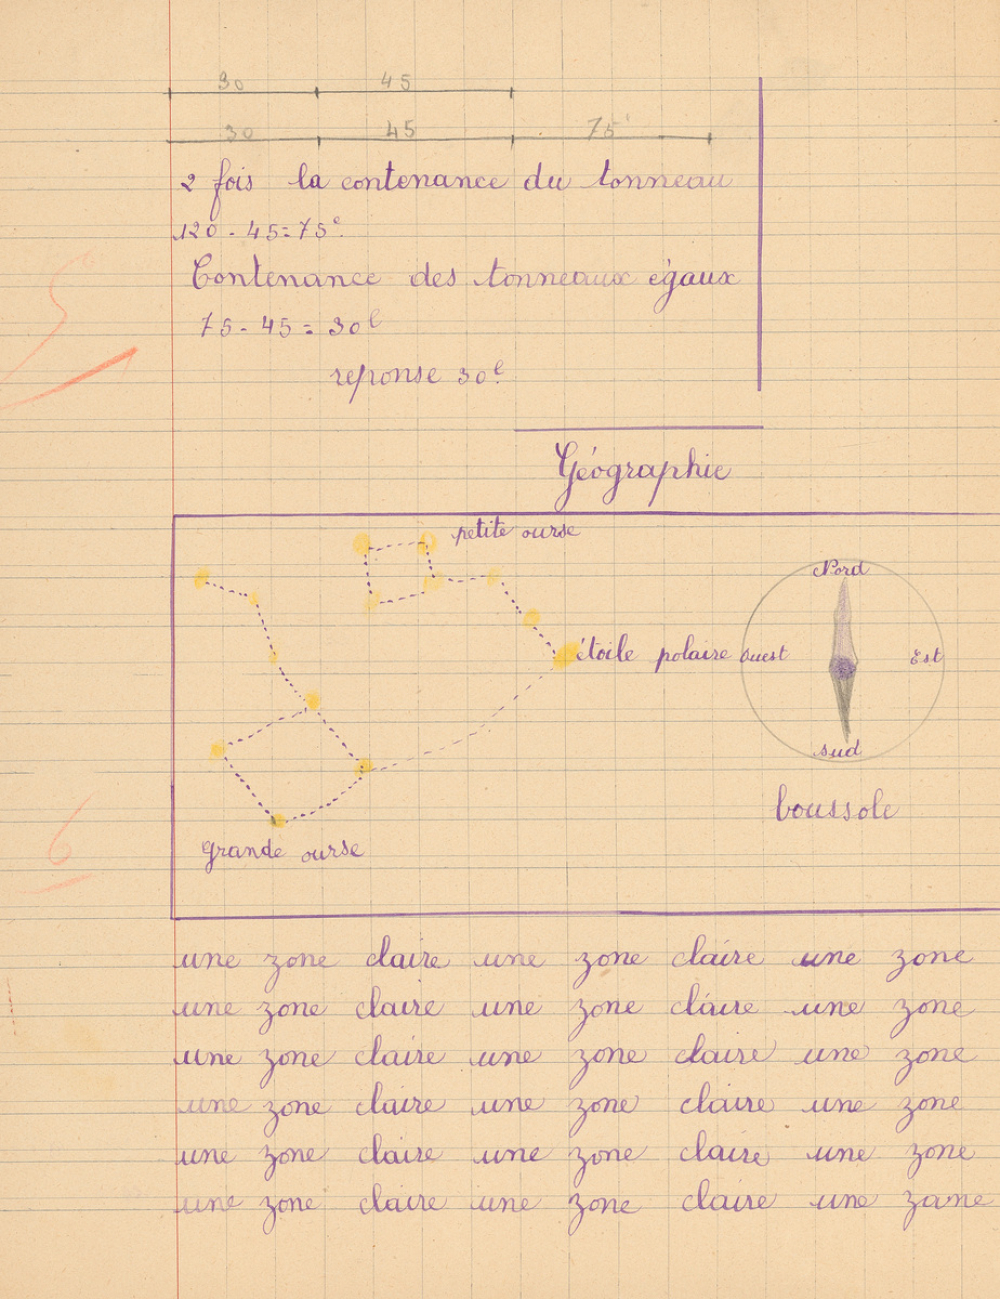 30 45
30 45 75
2 fois la contenance du tonneau
120 - 45 = 75ˡ
Contenance des tonneaux égaux
75 - 45 = 30ˡ
reponse 30ˡ
5
Géographie
petite ourse
Nord
étoile polaire
Ouest
Est
sud
boussole
grande ourse
6
une zone claire une zone claire une zone
une zone claire une zone claire une zone
une zone claire une zone claire une zone
une zone claire une zone claire une zone
une zone claire une zone claire une zone
une zone claire une zone claire une zone